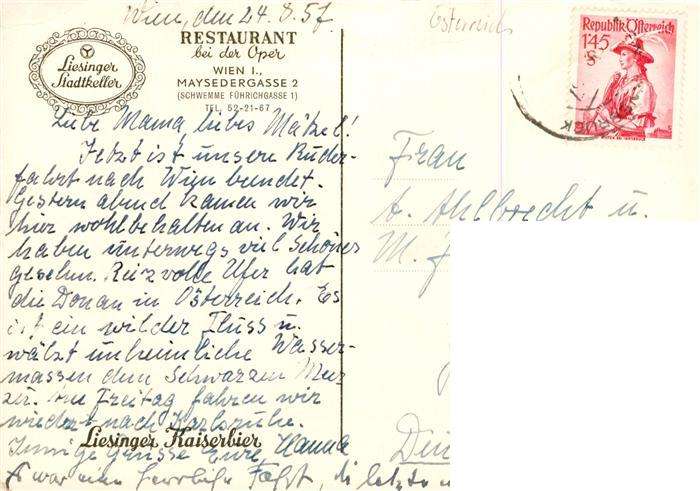 Wien, den 24.8.57
Österreich
Liesinger
Stadtkeller
RESTAURANT
bei der Oper
WIEN I.,
MAYSEDERGASSE 2
(SCHWEMME FÜHRICHGASSE 1)
TEL. 52-21-67
Republik Österreich
1·45
S
Liebe Mama, liebes Mätzel!
Jetzt ist unsere Ruder-
fahrt nach Wien beendet.
Gestern abend kamen wir
hier wohlbehalten an. Wir
haben unterwegs viel Schönes
gesehn. Reizvolle Ufer hat
die Donau in Österreich. Es
ist ein wilder Fluss u.
wälzt unheimliche Wasser-
massen dem Schwarzen Meer
zu. Am Freitag fahren wir
wieder nach Karlsruhe.
Innige Grüsse Eure Hanna
Liesinger Kaiserbier
Es war eine herrliche Fahrt, die letzte
Frau
A. Ahlbrecht u.
M.